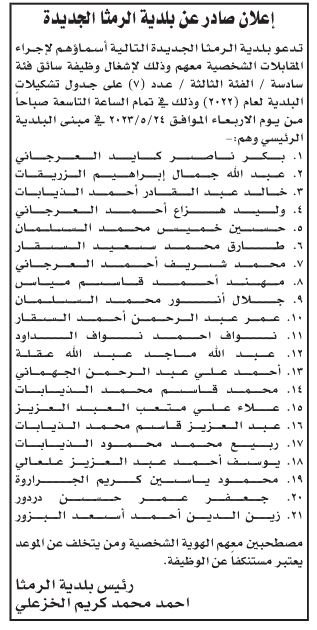 إعلان صادر عن بلدية الرمثا الجديدة
تدعو بلدية الرمثا الجديدة التالية أسماؤهم لإجراء
المقابلات الشخصية معهم وذلك لإشغال وظيفة سائق فئة
سادسة / الفئة الثالثة / عدد (٧) على جدول تشكيلات
البلدية لعام (٢٠٢٢) وذلك في تمام الساعة التاسعة صباحاً
من يوم الاربعاء الموافق ٢٠٢٣/٥/٢٤ في مبنى البلدية
الرئيسي وهم:-
١. بكر ناصر كايد العرجاني
٢. عبد الله جمال إبراهيم الزريقات
٣. خالد عبد القادر أحمد الذيابات
٤. وليد هزاع أحمد العرجاني
٥. حسين خميس محمد السلمان
٦. طارق محمد سعيد السقار
٧. محمد شريف أحمد العرجاني
٨. مهند أحمد قاسم مياس
٩. جلال أنور محمد السلمان
١٠. عمر عبد الرحمن أحمد السقار
١١. نواف احمد نواف الداود
١٢. عبد الله ماجد عبد الله عقلة
١٣. أحمد علي عبد الرحمن الجهماني
١٤. محمد قاسم محمد الذيابات
١٥. علاء علي متعب العبد العزيز
١٦. عبد العزيز قاسم محمد الذيابات
١٧. ربيع محمد محمود الذيابات
١٨. يوسف أحمد عبد العزيز علعالي
١٩. محمود ياسين كريم الجراروة
٢٠. جعفر عمر حسن دردور
٢١. زين الدين أحمد أسعد البزور
مصطحبين معهم الهوية الشخصية ومن يتخلف عن الموعد
يعتبر مستنكفاً عن الوظيفة.
رئيس بلدية الرمثا
احمد محمد كريم الخزعلي